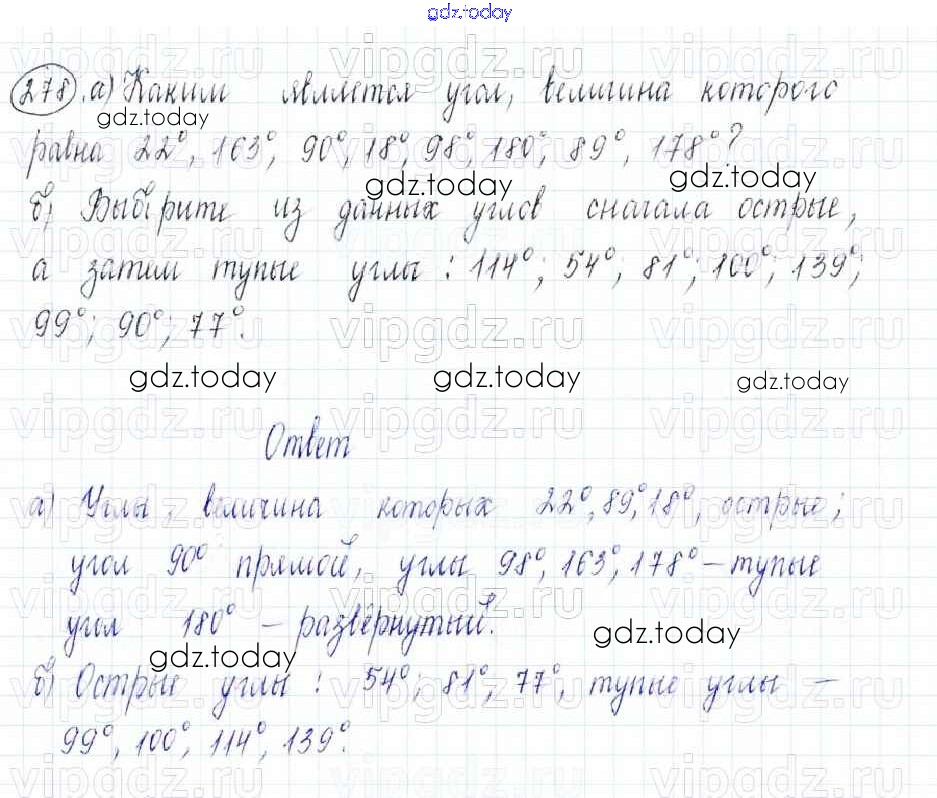 gdz.today
278. а) Каким является угол, величина которого
равна 22°, 163°, 90°, 18°, 98°, 180°, 89°, 178°?
б) Выберите из данных углов сначала острые,
а затем тупые углы: 114°; 54°; 81°; 100°; 139°;
99°; 90°; 77°.
gdz.today gdz.today gdz.today
Ответ
а) Углы, величина которых 22°, 89°, 18°, острые;
угол 90° прямой, углы 98°, 163°, 178° – тупые
угол 180° – развёрнутый.
б) Острые углы: 54°; 81°, 77°, тупые углы –
99°, 100°, 114°, 139°.